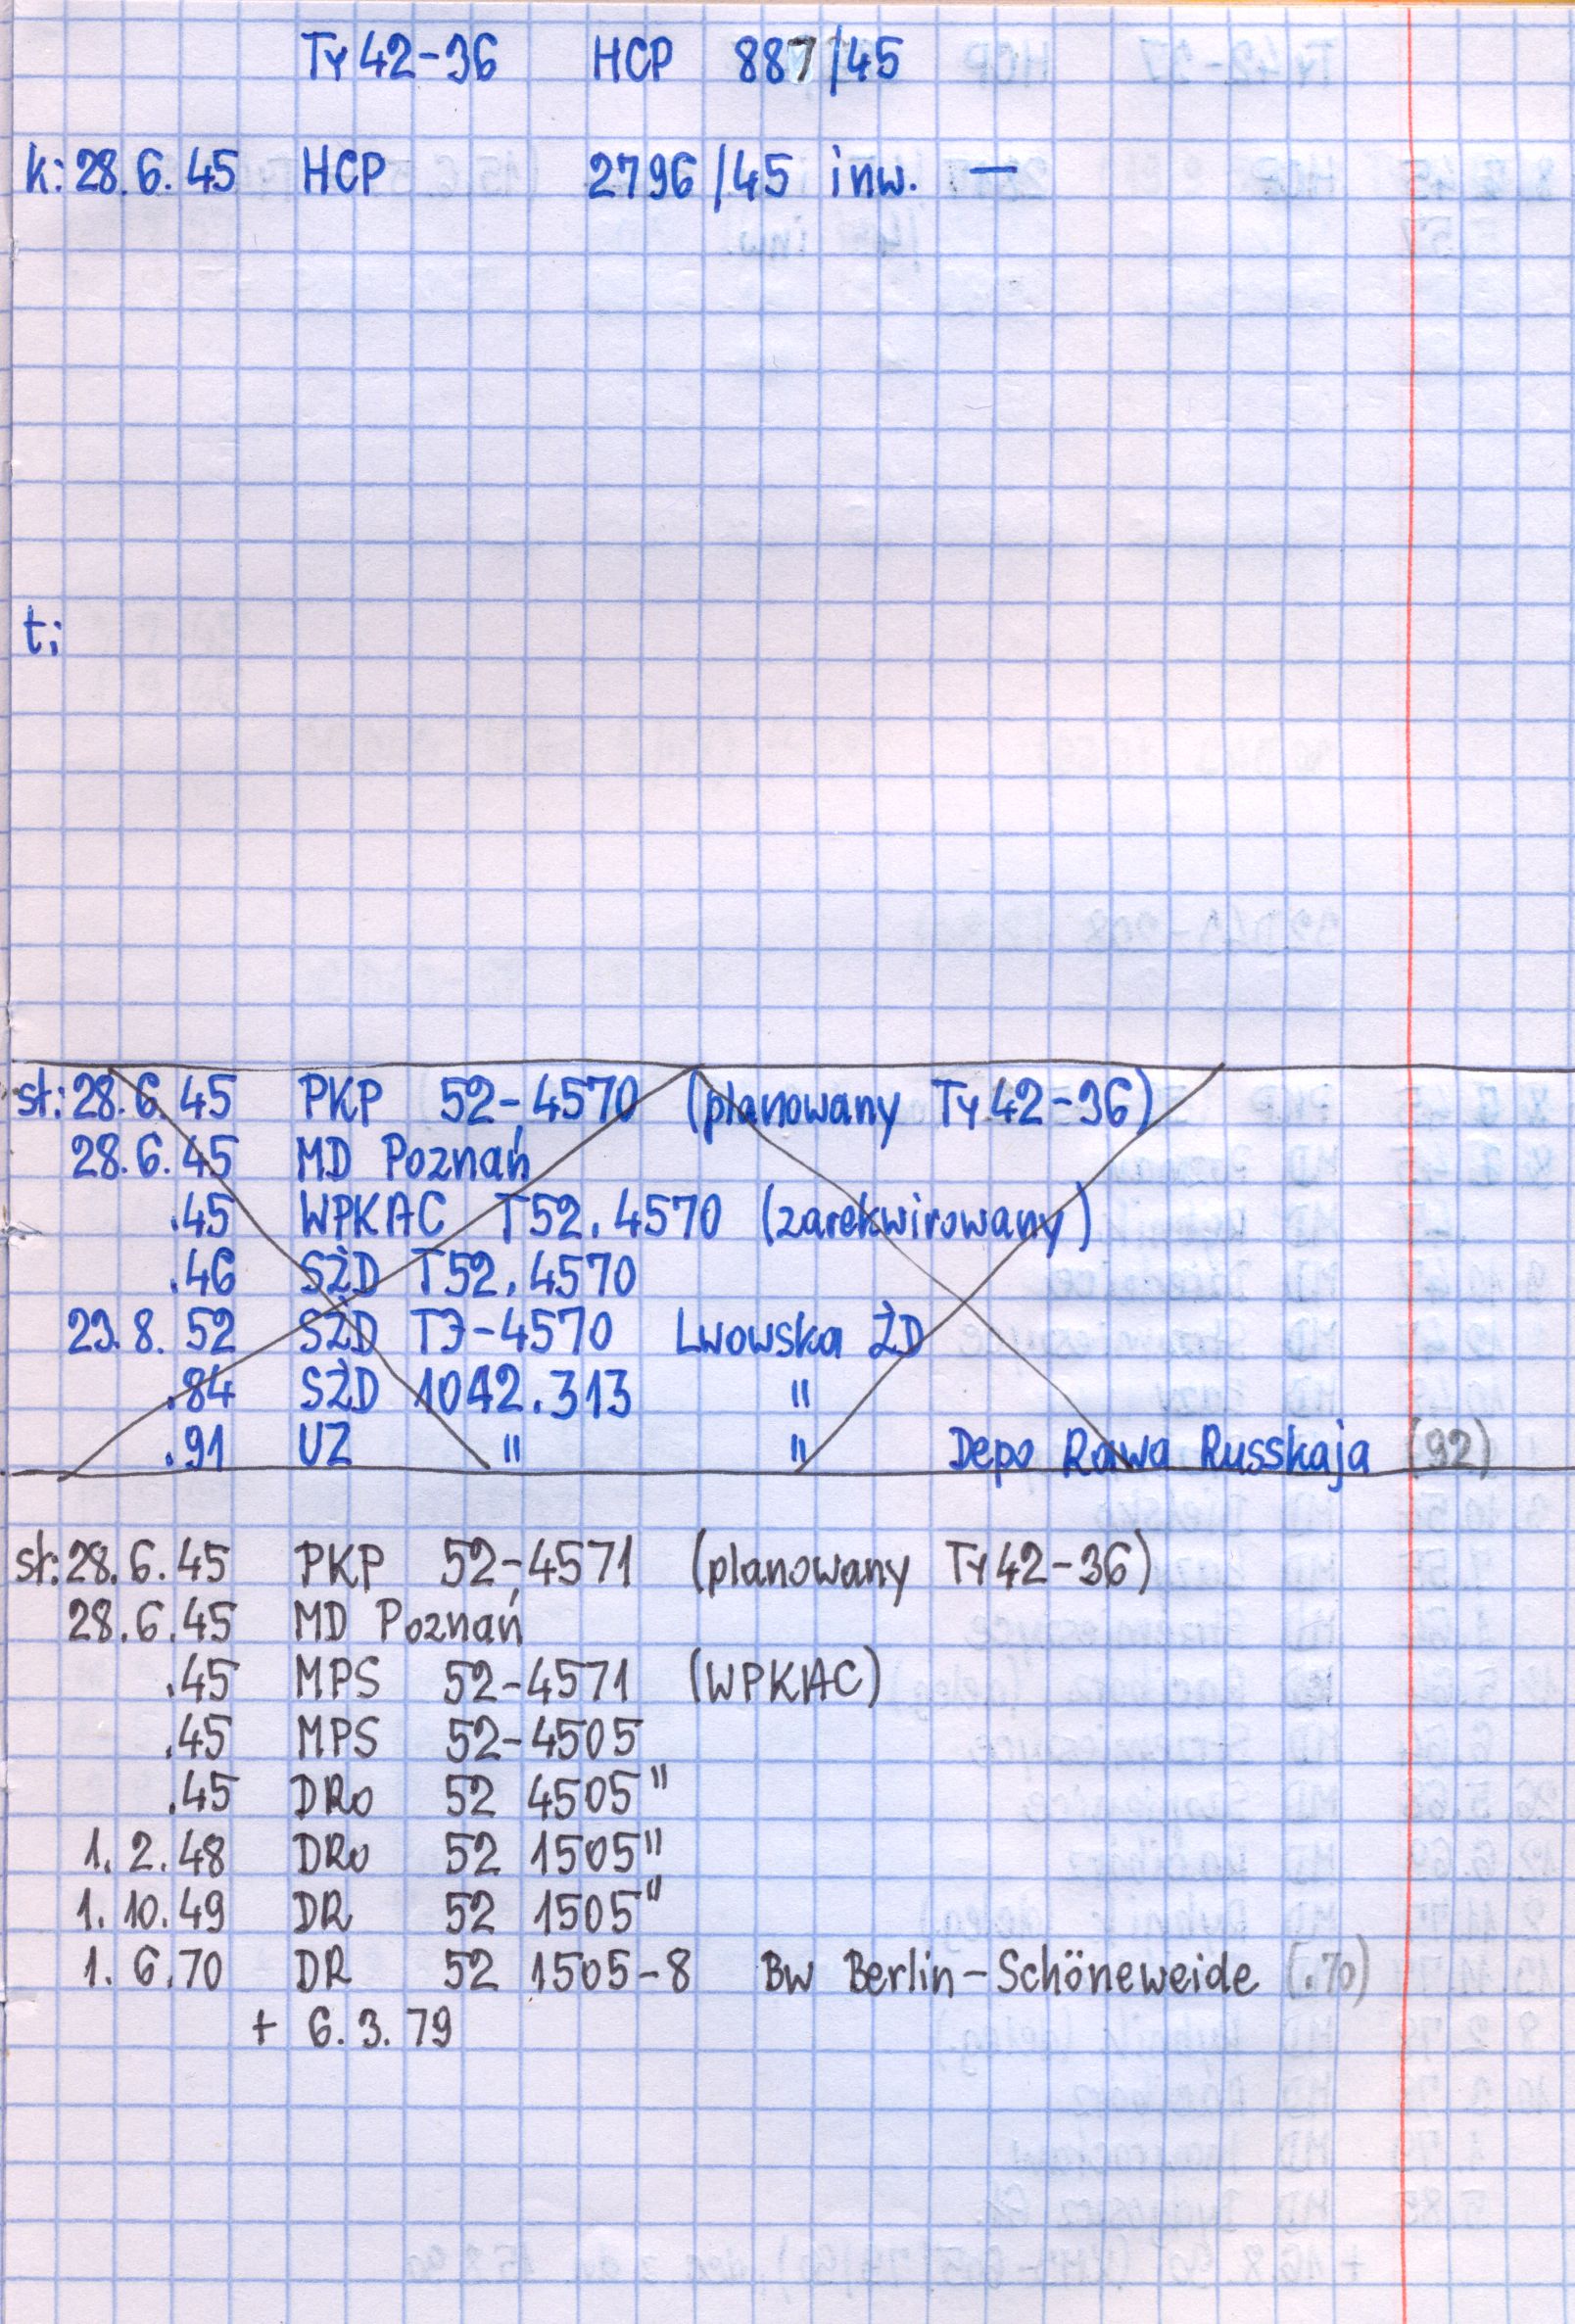 Ty42-36 HCP 887/45
k: 28.6.45 HCP 2796/45 inw. —
t:
st: 28.6.45 PKP 52-4570 (planowany Ty42-36)
28.6.45 MD Poznań
.45 WPKAC T52.4570 (zarekwirowany)
.46 SŻD T52.4570
29.8.52 SŻD TЭ-4570 Lwowska ŻD
.84 SŻD 1042.313 "
.91 UZ " " Depo Rawa Russkaja (92)
st: 28.6.45 PKP 52-4571 (planowany Ty42-36)
28.6.45 MD Poznań
.45 MPS 52-4571 (WPKAC)
.45 MPS 52-4505
.45 DRo 52 4505"
1.2.48 DRo 52 1505"
1.10.49 DR 52 1505"
1.6.70 DR 52 1505-8 Bw Berlin-Schöneweide (.70)
+ 6.3.79